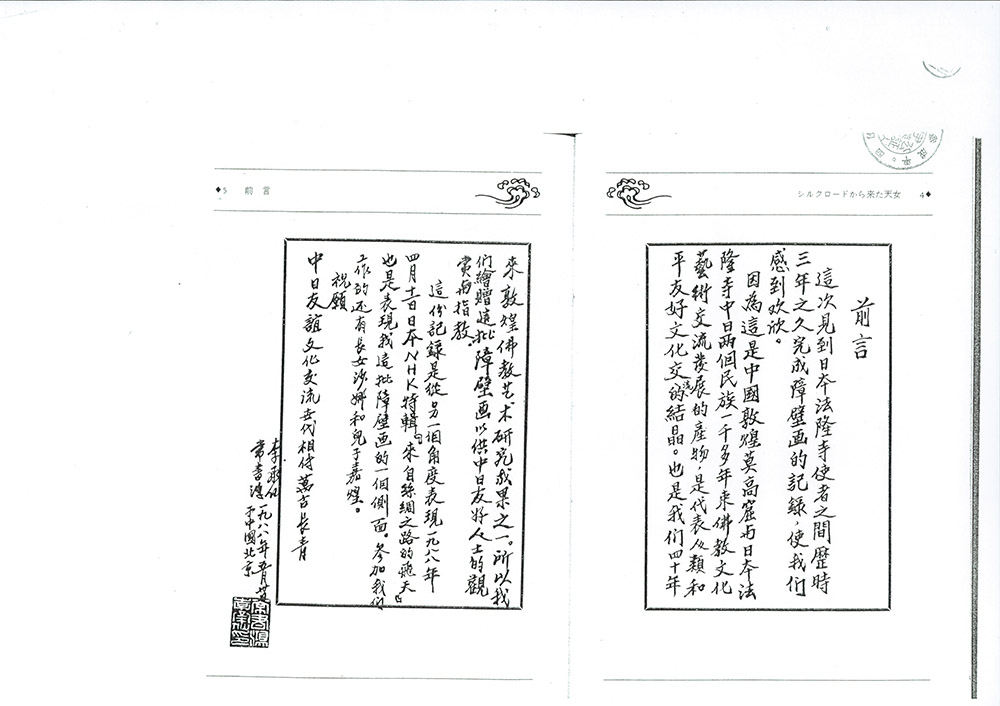 シルクロードから来た天女 4
前言
這次見到日本法隆寺使者之間歷時
三年之久完成障壁画的記錄,使我们
感到欢欣。
因為這是中國敦煌莫高窟與日本法
隆寺中日兩個民族一千多年來佛教文化
藝術交流发展的產物,是代表人類和
平友好文化交流的結晶。也是我们四十年
5 前言
來敦煌佛教艺术研究成果之一。所以我
们繪贈這批障壁画以供中日友好人士的觀
賞與指教。
這份記録是從另一個角度表現一九八八年
四月十二日日本NHK特輯『來自絲綢之路的飛天』
也是表現我這批障壁画的一個側面。参加我们
工作的还有長女沙娜和兒子嘉煌。
祝願
中日友誼文化交流世代相传萬古長青
李承仙
常書鴻
一九八八年五月
于中國北京